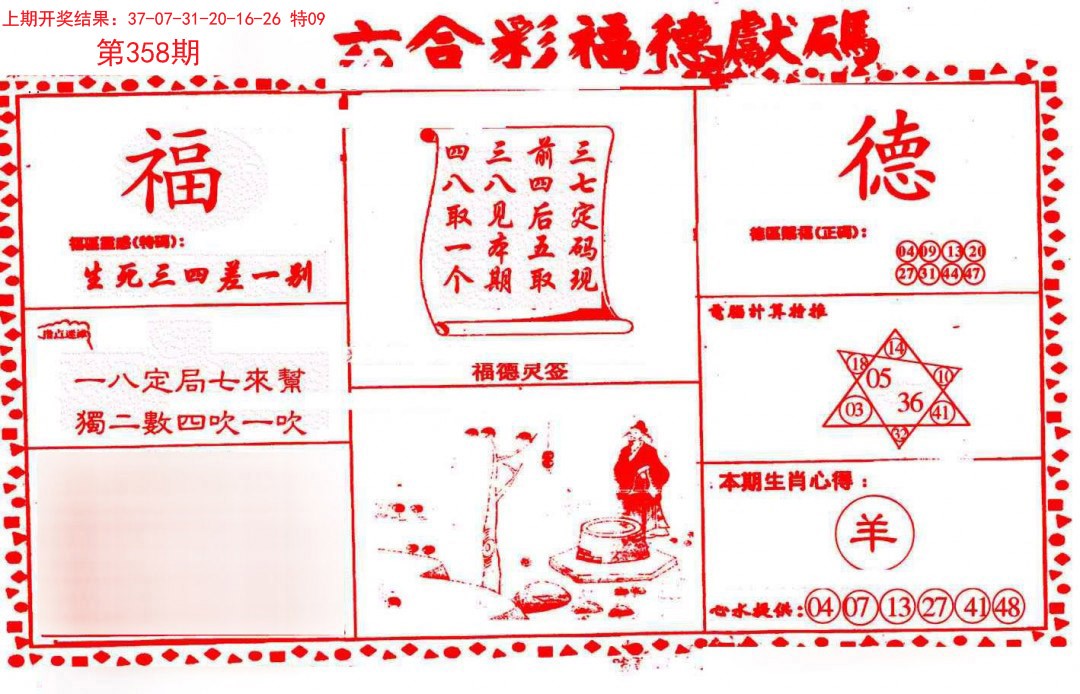 上期开奖结果：37-07-31-20-16-26 特09
第358期
六合彩福德獻碼
福
福區靈感(特碼)：
生死三四差一别
指点迷津
一八定局七來幫
獨二數四吹一吹
三七定码现
前四后五取
三八见本期
四八取一个
福德灵签
德
德區賜福(正碼)：
04 09 13 20
27 31 44 47
電腦計算檢推
14
18
05
10
03
36
41
32
本期生肖心得：
羊
心水提供：04 07 13 27 41 48